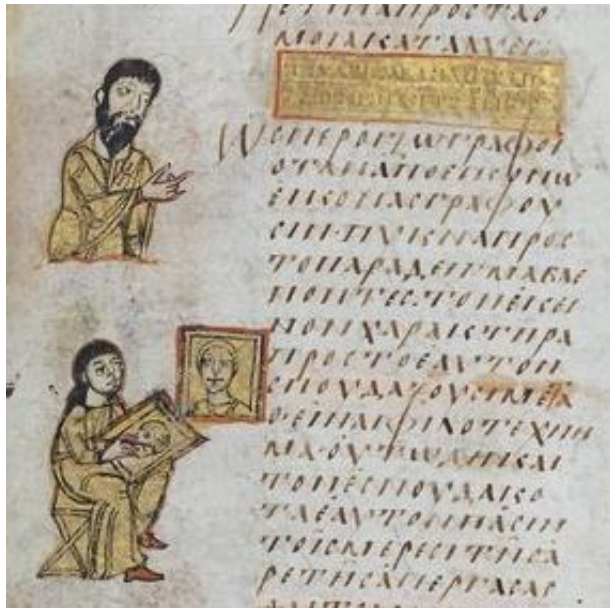 ΩΣΠΕΡΟΙΖΩΓΡΑΦΟΙ
ΟΤΑΝΑΠΟΕΙΚΟΝΩ
ΕΙΚΟΝΑΣΓΡΑΦΟΥ
ΣΙΝ·ΠΥΚΝΑΠΡΟΣ
ΤΟΠΑΡΑΔΕΙΓΜΑΒΛΕ
ΠΟΝΤΕΣ·ΤΟΝΕΚΕΙ
ΝΟΝΧΑΡΑΚΤΗΡΑ
ΠΡΟΣΤΟΕΑΥΤΟΝ
ΣΠΟΥΔΑΖΟΥΣΙΜΕΤΑ
ΘΕΙΝΑΙΦΙΛΟΤΕΧΝΗ
ΜΑ·ΟΥΤΩΔΗΚΑΙ
ΤΟΝΕΣΠΟΥΔΑΚΟ
ΤΑΕΑΥΤΟΝΠΑΣΙΝ
ΤΟΙΣΜΕΡΕΣΙΤΗΣΑ
ΡΕΤΗΣΑΠΕΡΓΑΣΑΣ